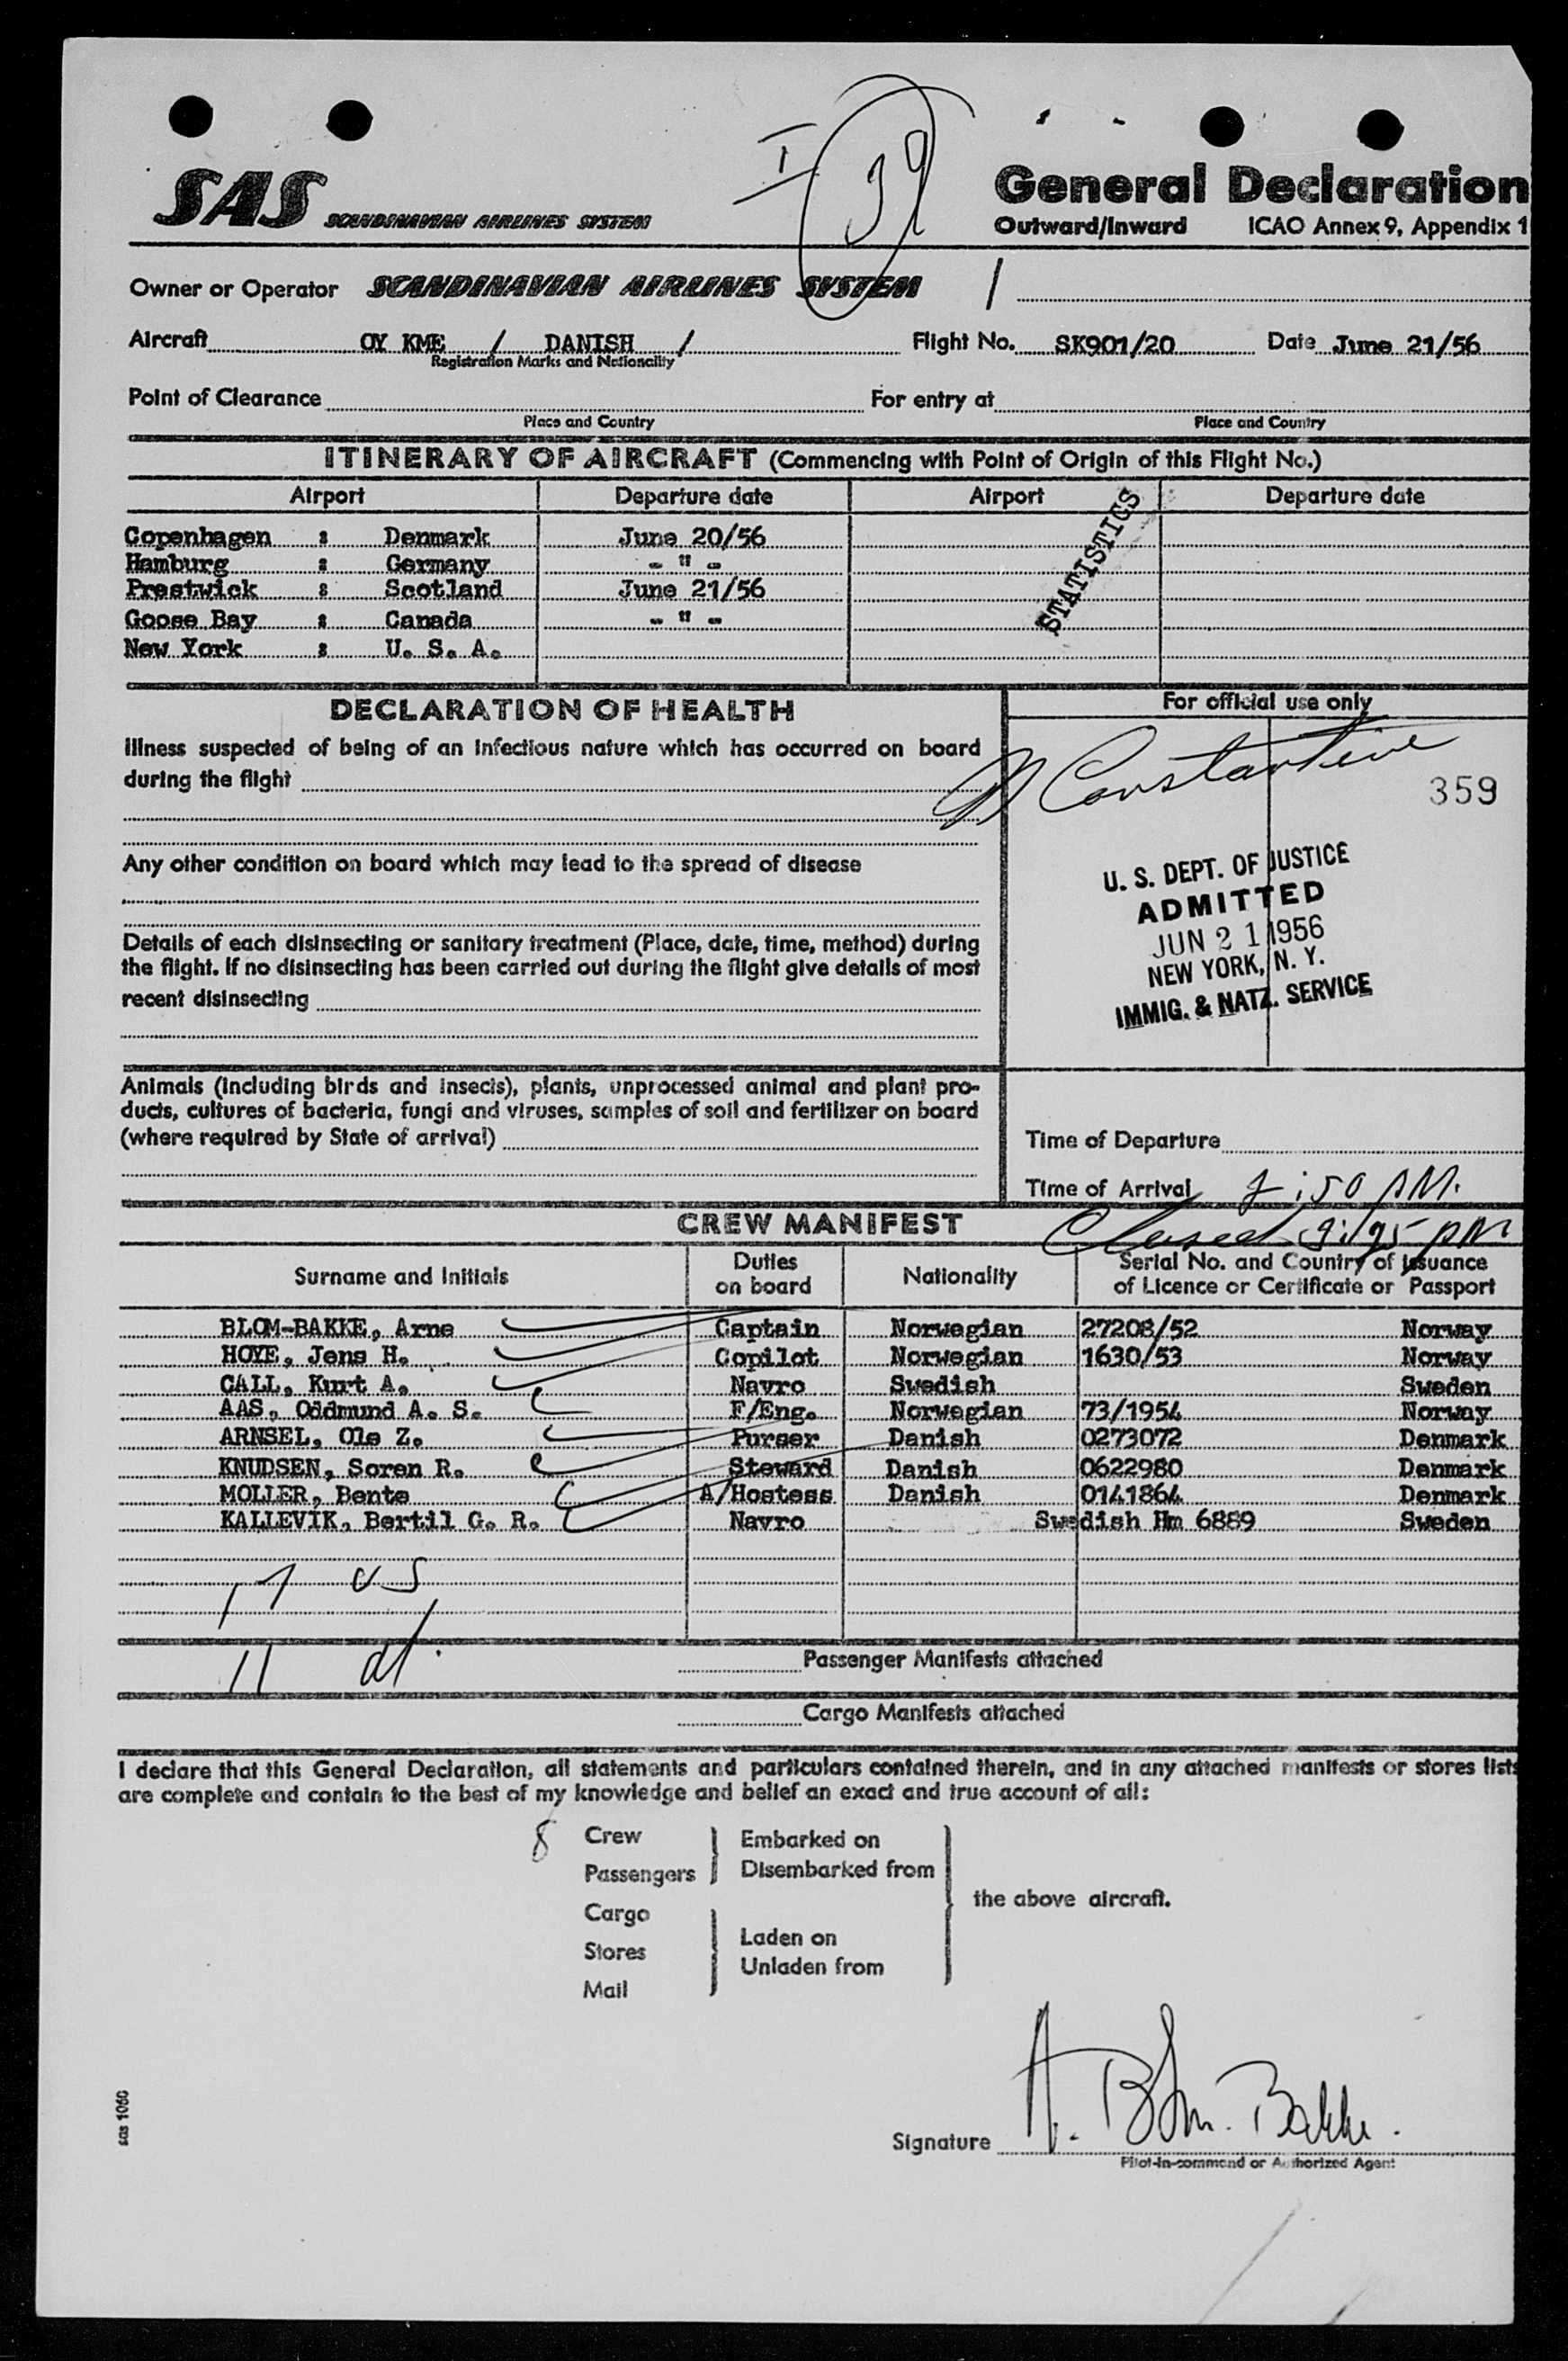 I 39
SAS SCANDINAVIAN AIRLINES SYSTEM
General Declaration
Outward/Inward ICAO Annex 9, Appendix 1
Owner or Operator SCANDINAVIAN AIRLINES SYSTEM /
Aircraft OY KME / DANISH / Flight No. SK901/20 Date June 21/56
Registration Marks and Nationality
Point of Clearance For entry at
Place and Country Place and Country
ITINERARY OF AIRCRAFT (Commencing with Point of Origin of this Flight No.)
Airport Departure date Airport Departure date
Copenhagen : Denmark June 20/56
Hamburg : Germany - " -
Prestwick : Scotland June 21/56
Goose Bay : Canada - " -
New York : U. S. A.
STATISTICS
DECLARATION OF HEALTH
Illness suspected of being of an infectious nature which has occurred on board
during the flight
Any other condition on board which may lead to the spread of disease
Details of each disinsecting or sanitary treatment (Place, date, time, method) during
the flight. If no disinsecting has been carried out during the flight give details of most
recent disinsecting
Animals (including birds and insects), plants, unprocessed animal and plant pro-
ducts, cultures of bacteria, fungi and viruses, samples of soil and fertilizer on board
(where required by State of arrival)
For official use only
Constantine
359
U. S. DEPT. OF JUSTICE
ADMITTED
JUN 21 1956
NEW YORK, N. Y.
IMMIG. & NATZ. SERVICE
Time of Departure
Time of Arrival :50 PM.
Closed PM
CREW MANIFEST
Surname and Initials Duties on board Nationality Serial No. and Country of Issuance of Licence or Certificate or Passport
BLOM-BAKKE, Arne Captain Norwegian 27208/52 Norway
HOYE, Jens H. Copilot Norwegian 1630/53 Norway
CALL, Kurt A. Navro Swedish Sweden
AAS, Oddmund A. S. F/Eng. Norwegian 73/1954 Norway
ARNSEL, Ole Z. Purser Danish 0273072 Denmark
KNUDSEN, Soren R. Steward Danish 0622980 Denmark
MOLLER, Bente A/Hostess Danish 0141864 Denmark
KALLEVIK, Bertil G. R. Navro Swedish Hm 6889 Sweden
17 US
11 al.
Passenger Manifests attached
Cargo Manifests attached
I declare that this General Declaration, all statements and particulars contained therein, and in any attached manifests or stores lists
are complete and contain to the best of my knowledge and belief an exact and true account of all:
8 Crew Embarked on
Passengers Disembarked from
the above aircraft.
Cargo
Stores Laden on
Unladen from
Mail
sas 1060
Signature A. Blom-Bakke.
Pilot-in-command or Authorized Agent